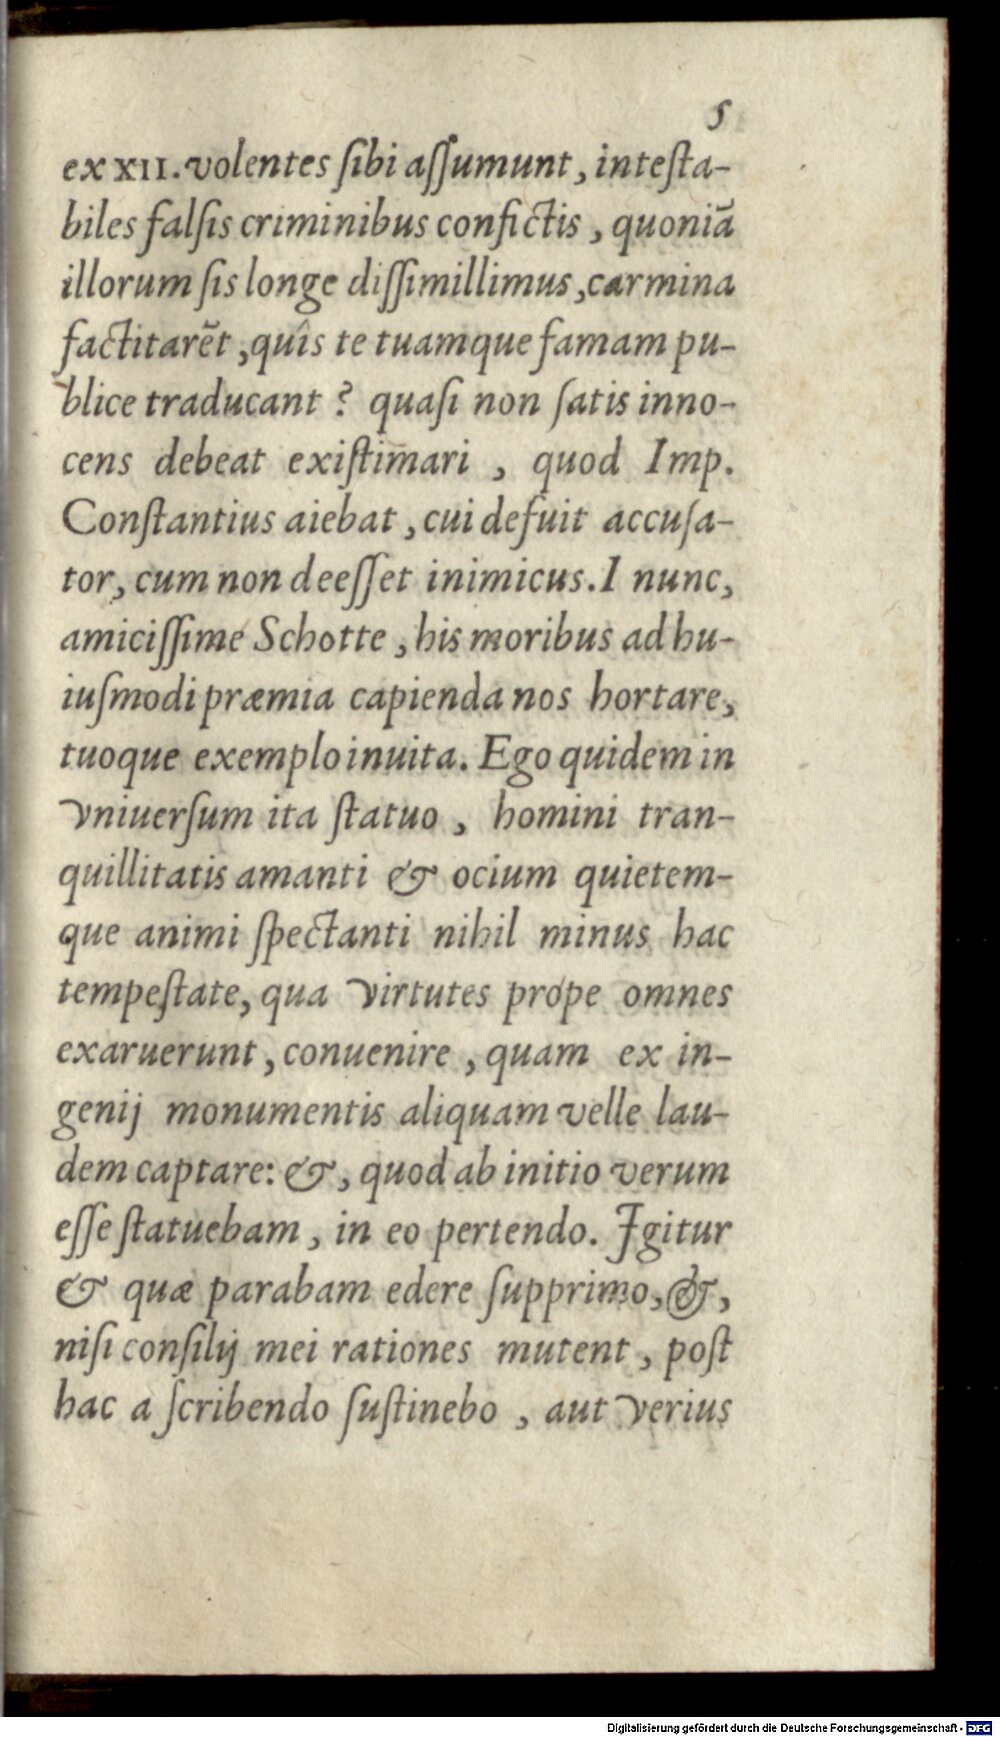 5
ex XII. volentes ſibi aſſumunt, inteſta-
biles falſis criminibus confictis, quoniā
illorum ſis longe diſſimillimus, carmina
factitarēt, quîs te tuamque famam pu-
blice traducant? quaſi non ſatis inno-
cens debeat exiſtimari, quod Imp.
Conſtantius aiebat, cui defuit accuſa-
tor, cum non deeſſet inimicus. I nunc,
amiciſſime Schotte, his moribus ad hu-
iuſmodi præmia capienda nos hortare,
tuoque exemplo inuita. Ego quidem in
vniuerſum ita ſtatuo, homini tran-
quillitatis amanti & ocium quietem-
que animi ſpectanti nihil minus hac
tempeſtate, qua virtutes prope omnes
exaruerunt, conuenire, quam ex in-
genij monumentis aliquam velle lau-
dem captare: &, quod ab initio verum
eſſe ſtatuebam, in eo pertendo. Igitur
& quæ parabam edere ſupprimo, &,
niſi conſilij mei rationes mutent, poſt
hac a ſcribendo ſuſtinebo, aut verius
Digitalisierung gefördert durch die Deutsche Forschungsgemeinschaft - DFG